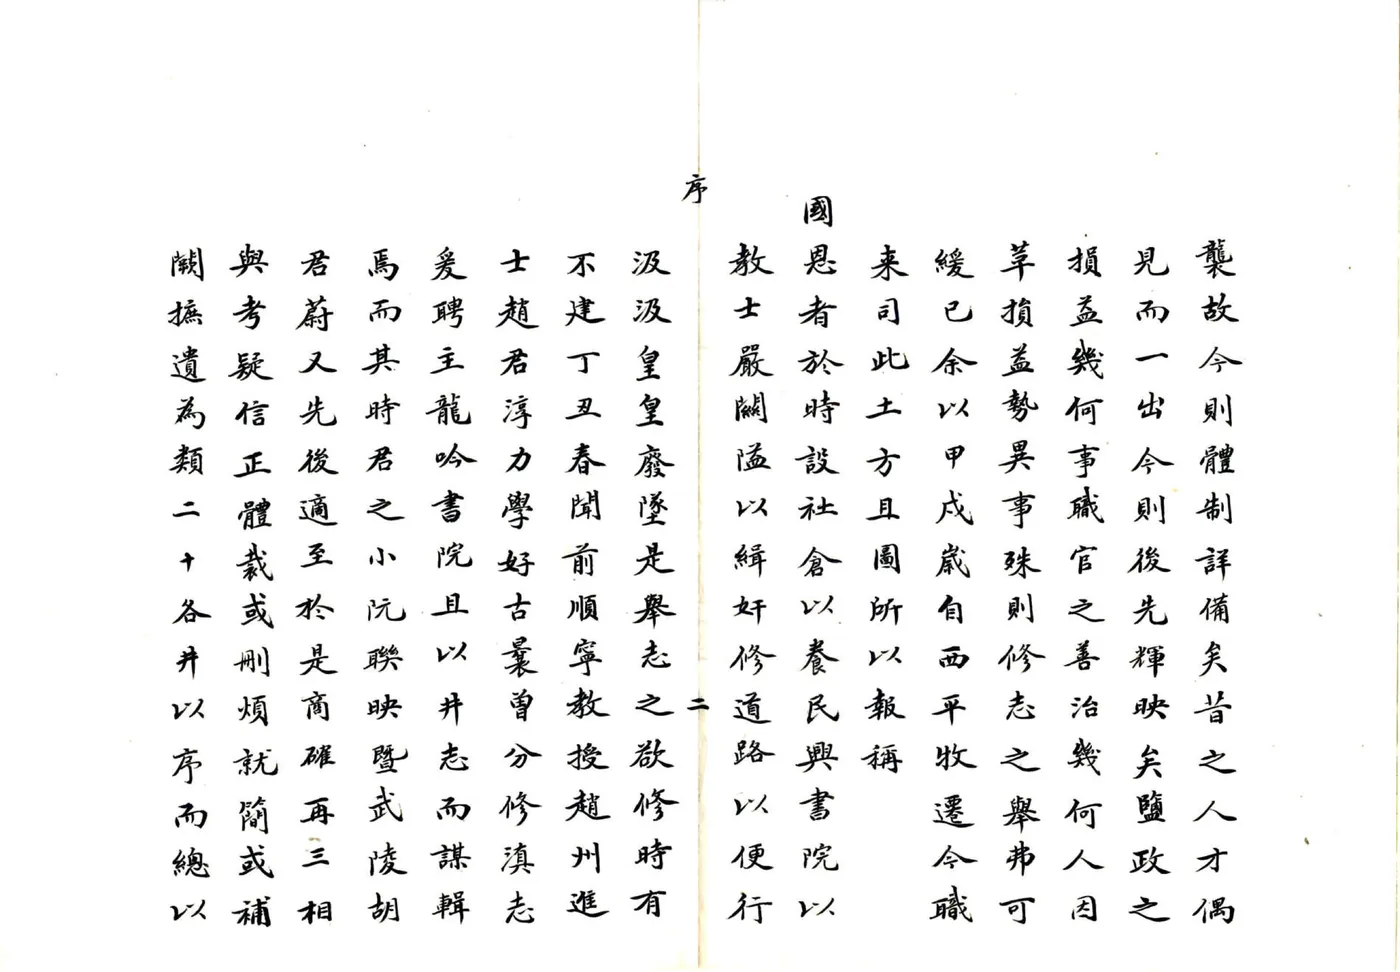 襲故今則體制詳備矣昔之人才偶
見而一出今則後先輝映矣鹽政之
損益幾何事職官之善治幾何人因
革損益勢異事殊則修志之舉弗可
緩已余以甲戍歲自西平牧遷今職
来司此土方且圖所以報稱
國恩者於時設社倉以養民興書院以
教士嚴關隘以緝奸修道路以便行
序
二
汲汲皇皇廢墜是舉志之欲修時有
不建丁丑春聞前順寧教授趙州進
士趙君淳力學好古曩曾分修滇志
爰聘主龍吟書院且以井志而謀輯
焉而其時君之小阮聯映暨武陵胡
君蔚又先後適至於是商確再三相
與考疑信正體裁或刪煩就簡或補
闕摭遺為類二十各井以序而總以